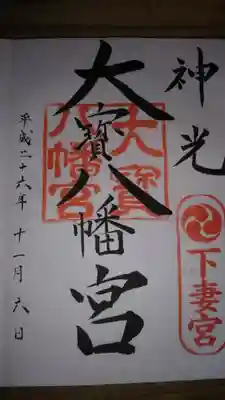 神光
下妻宮
大寶八幡宮
大寶
八幡宮
平成二十六年十一月六日